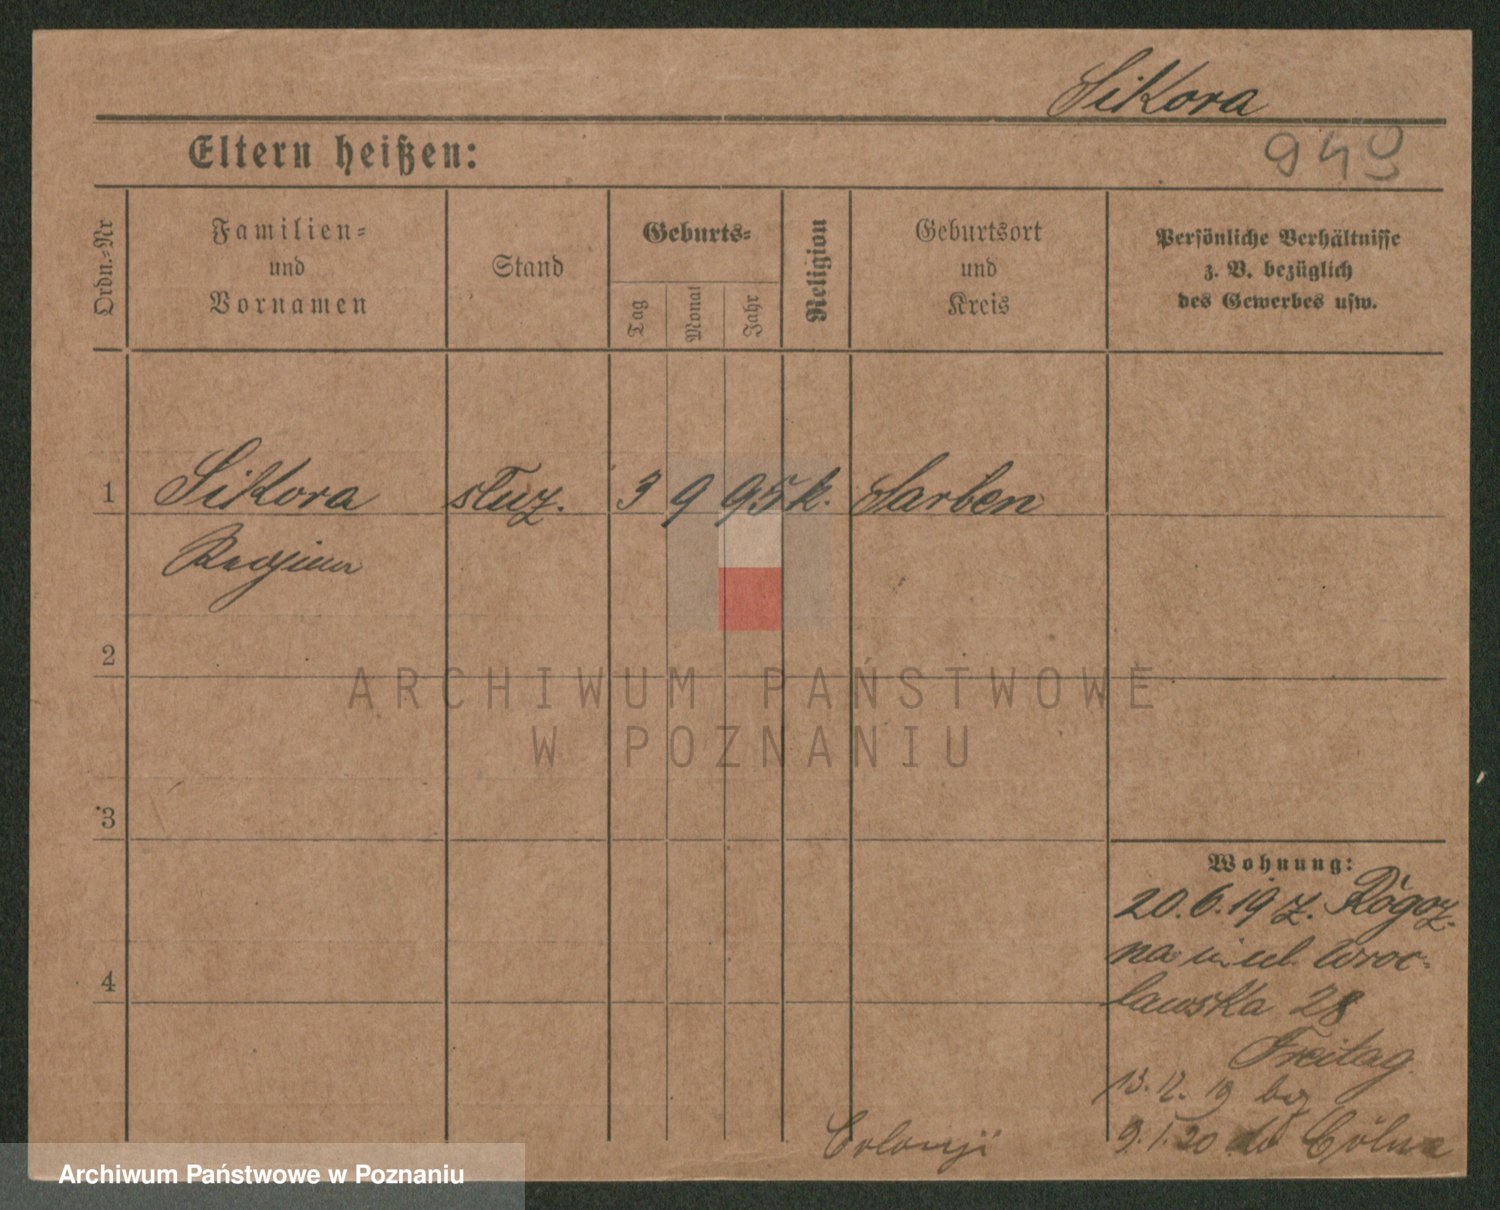 Sikora
Eltern heißen:
943
Ordn.-Nr
Familien-
und
Vornamen
Stand
Geburts-
Tag
Monat
Jahr
Religion
Geburtsort
und
Kreis
Persönliche Verhältnisse
z. B. bezüglich
des Gewerbes usw.
1 Sikora służ. 3 9 95 k. Sarben
Regina
2
ARCHIWUM PAŃSTWOWE
W POZNANIU
3
Wohnung:
20.6.19 z. Rógoź-
na ul. Wroc-
4
ławska 28
Freitag
13.12.19
9.1.20 do Cöln
Colonji
Archiwum Państwowe w Poznaniu